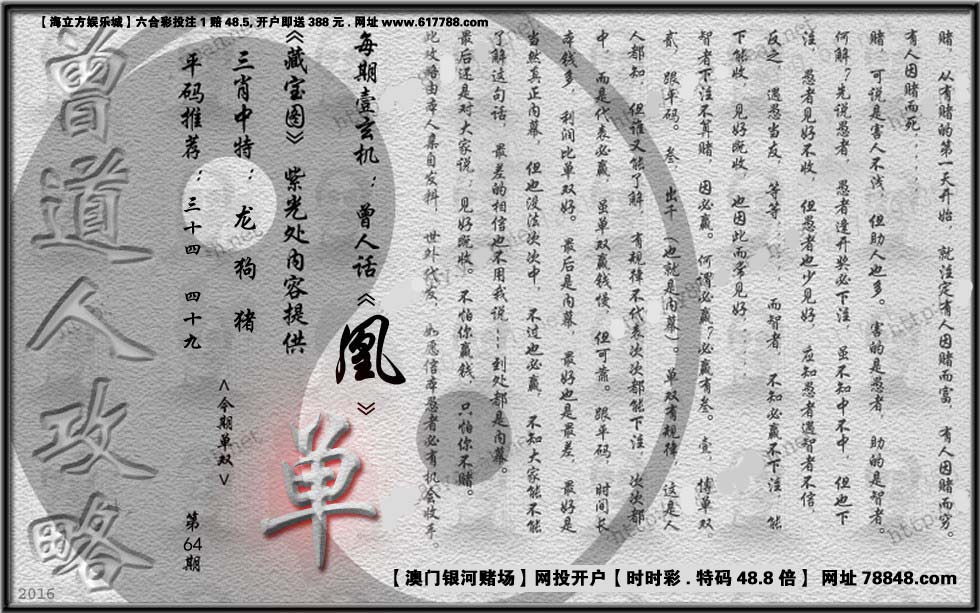 【海立方娱乐城】六合彩投注1赔48.5,开户即送388元.网址www.617788.com
赌，从有赌的第一天开始，就注定有人因赌而富，有人因赌而穷。
有人因赌而死......
赌，可说是害人不浅，但助人也多。害的是愚者，助的是智者。
何解？先说愚者，愚者逢开奖必下注，虽不知中不中，但也下
注，愚者见好不收，但愚者也少见好，应知愚者遇智者不信，
反之，遇愚当友，等等......而智者，不知必赢不下注，能
下能收，见好既收，也因此而常见好......
智者下注不算赌，因必赢。何谓必赢？必赢有叁。壹，博单双，
贰，跟平码。叁，出千，（也就是内幕）。单双有规律，这是人
人都知，但谁又能了解，有规律不代表次次都能下注，次次都
中，而是代表必赢，虽单双赢钱慢，但可靠。跟平码，时间长
本钱多，利润比单双好。最后是内幕，最好也是最差，最好是
当然真正内幕，但也没法次次中，不过也必赢，不知大家能不能
了解这句话，最差的相信也不用我说......到处都是内幕。
最后还是对大家说：见好既收。不怕你赢钱，只怕你不赌。
此攻略由本人亲自发料，世外代发，如愿信本愚者必有机会收手。
每期壹玄机：曾人话《凰》
《藏宝图》紫光处内容提供
三肖中特：龙 狗 猪
平码推荐：三十四 四十九
<今期单双>
单
第64期
曾道人攻略
2016
【澳门银河赌场】网投开户【时时彩.特码48.8倍】网址78848.com